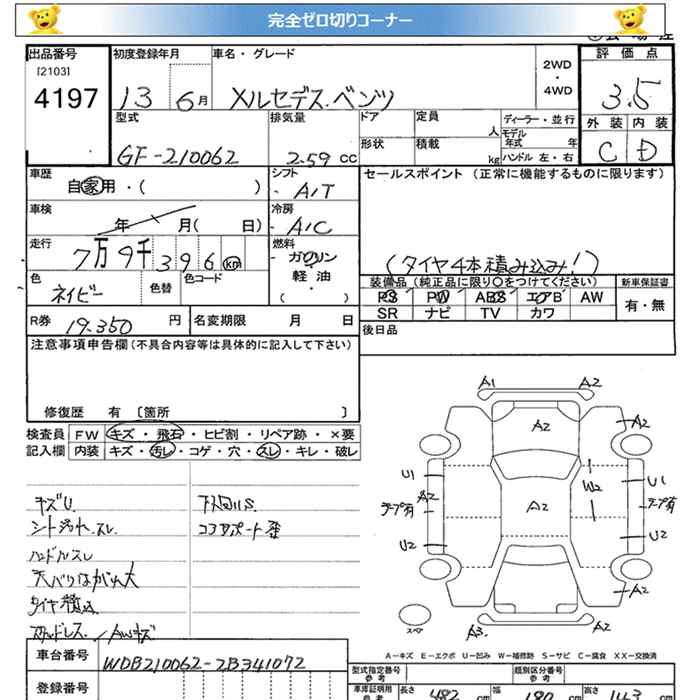 完全ゼロ切りコーナー
出品番号 初度登録年月 車名・グレード 2WD・4WD 評価点
[2103]
4197 13 6月 メルセデス.ベンツ 3.5
型式 排気量 ドア 定員 人 ディーラー・並行 外装 内装
GF-210062 2.59 cc 形状 積載 kg モデル年式 年 ハンドル 左・右 C D
車歴 自家用・( ) シフト A/T セールスポイント (正常に機能するものに限ります)
車検 年 月( 日) 冷房 A/C
走行 7万9千396km 燃料 ガソリン 軽油 ( ) (タイヤ4本積み込み!)
色 ネイビー 色替 色コード 装備品 (純正品に限り○をつけてください) 新車保証書
PS PW ABS エアB AW 有・無
SR ナビ TV カワ
R券 19.350 円 名変期限 月 日 後日品
注意事項申告欄(不具合内容等は具体的に記入して下さい)
修復歴 有 [箇所 ]
検査員 FW キズ・飛石・ヒビ割・リペア跡・×要
記入欄 内装 キズ・汚レ・コゲ・穴・スレ・キレ・破レ
A1 A2
A2 A2
U1 A2 W2 U1
テープ有 A2 テープ有
U2 U2
A2
スペア A3 A2
キズU.
シート汚れ.スレ
ハンドルスレ
天バリはがれ大
タイヤ積込
スタッドレス / AWキズ
下回りS.
コアサポート歪
A-キズ E-エクボ U-凹み W-補修跡 S-サビ C-腐食 XX-交換済
車台番号 WDB210062-2B341072
登録番号
型式指定番号 参考 類別区分番号 参考
車庫証明用 参考 長さ 482 cm 幅 180 cm 高さ 143 cm